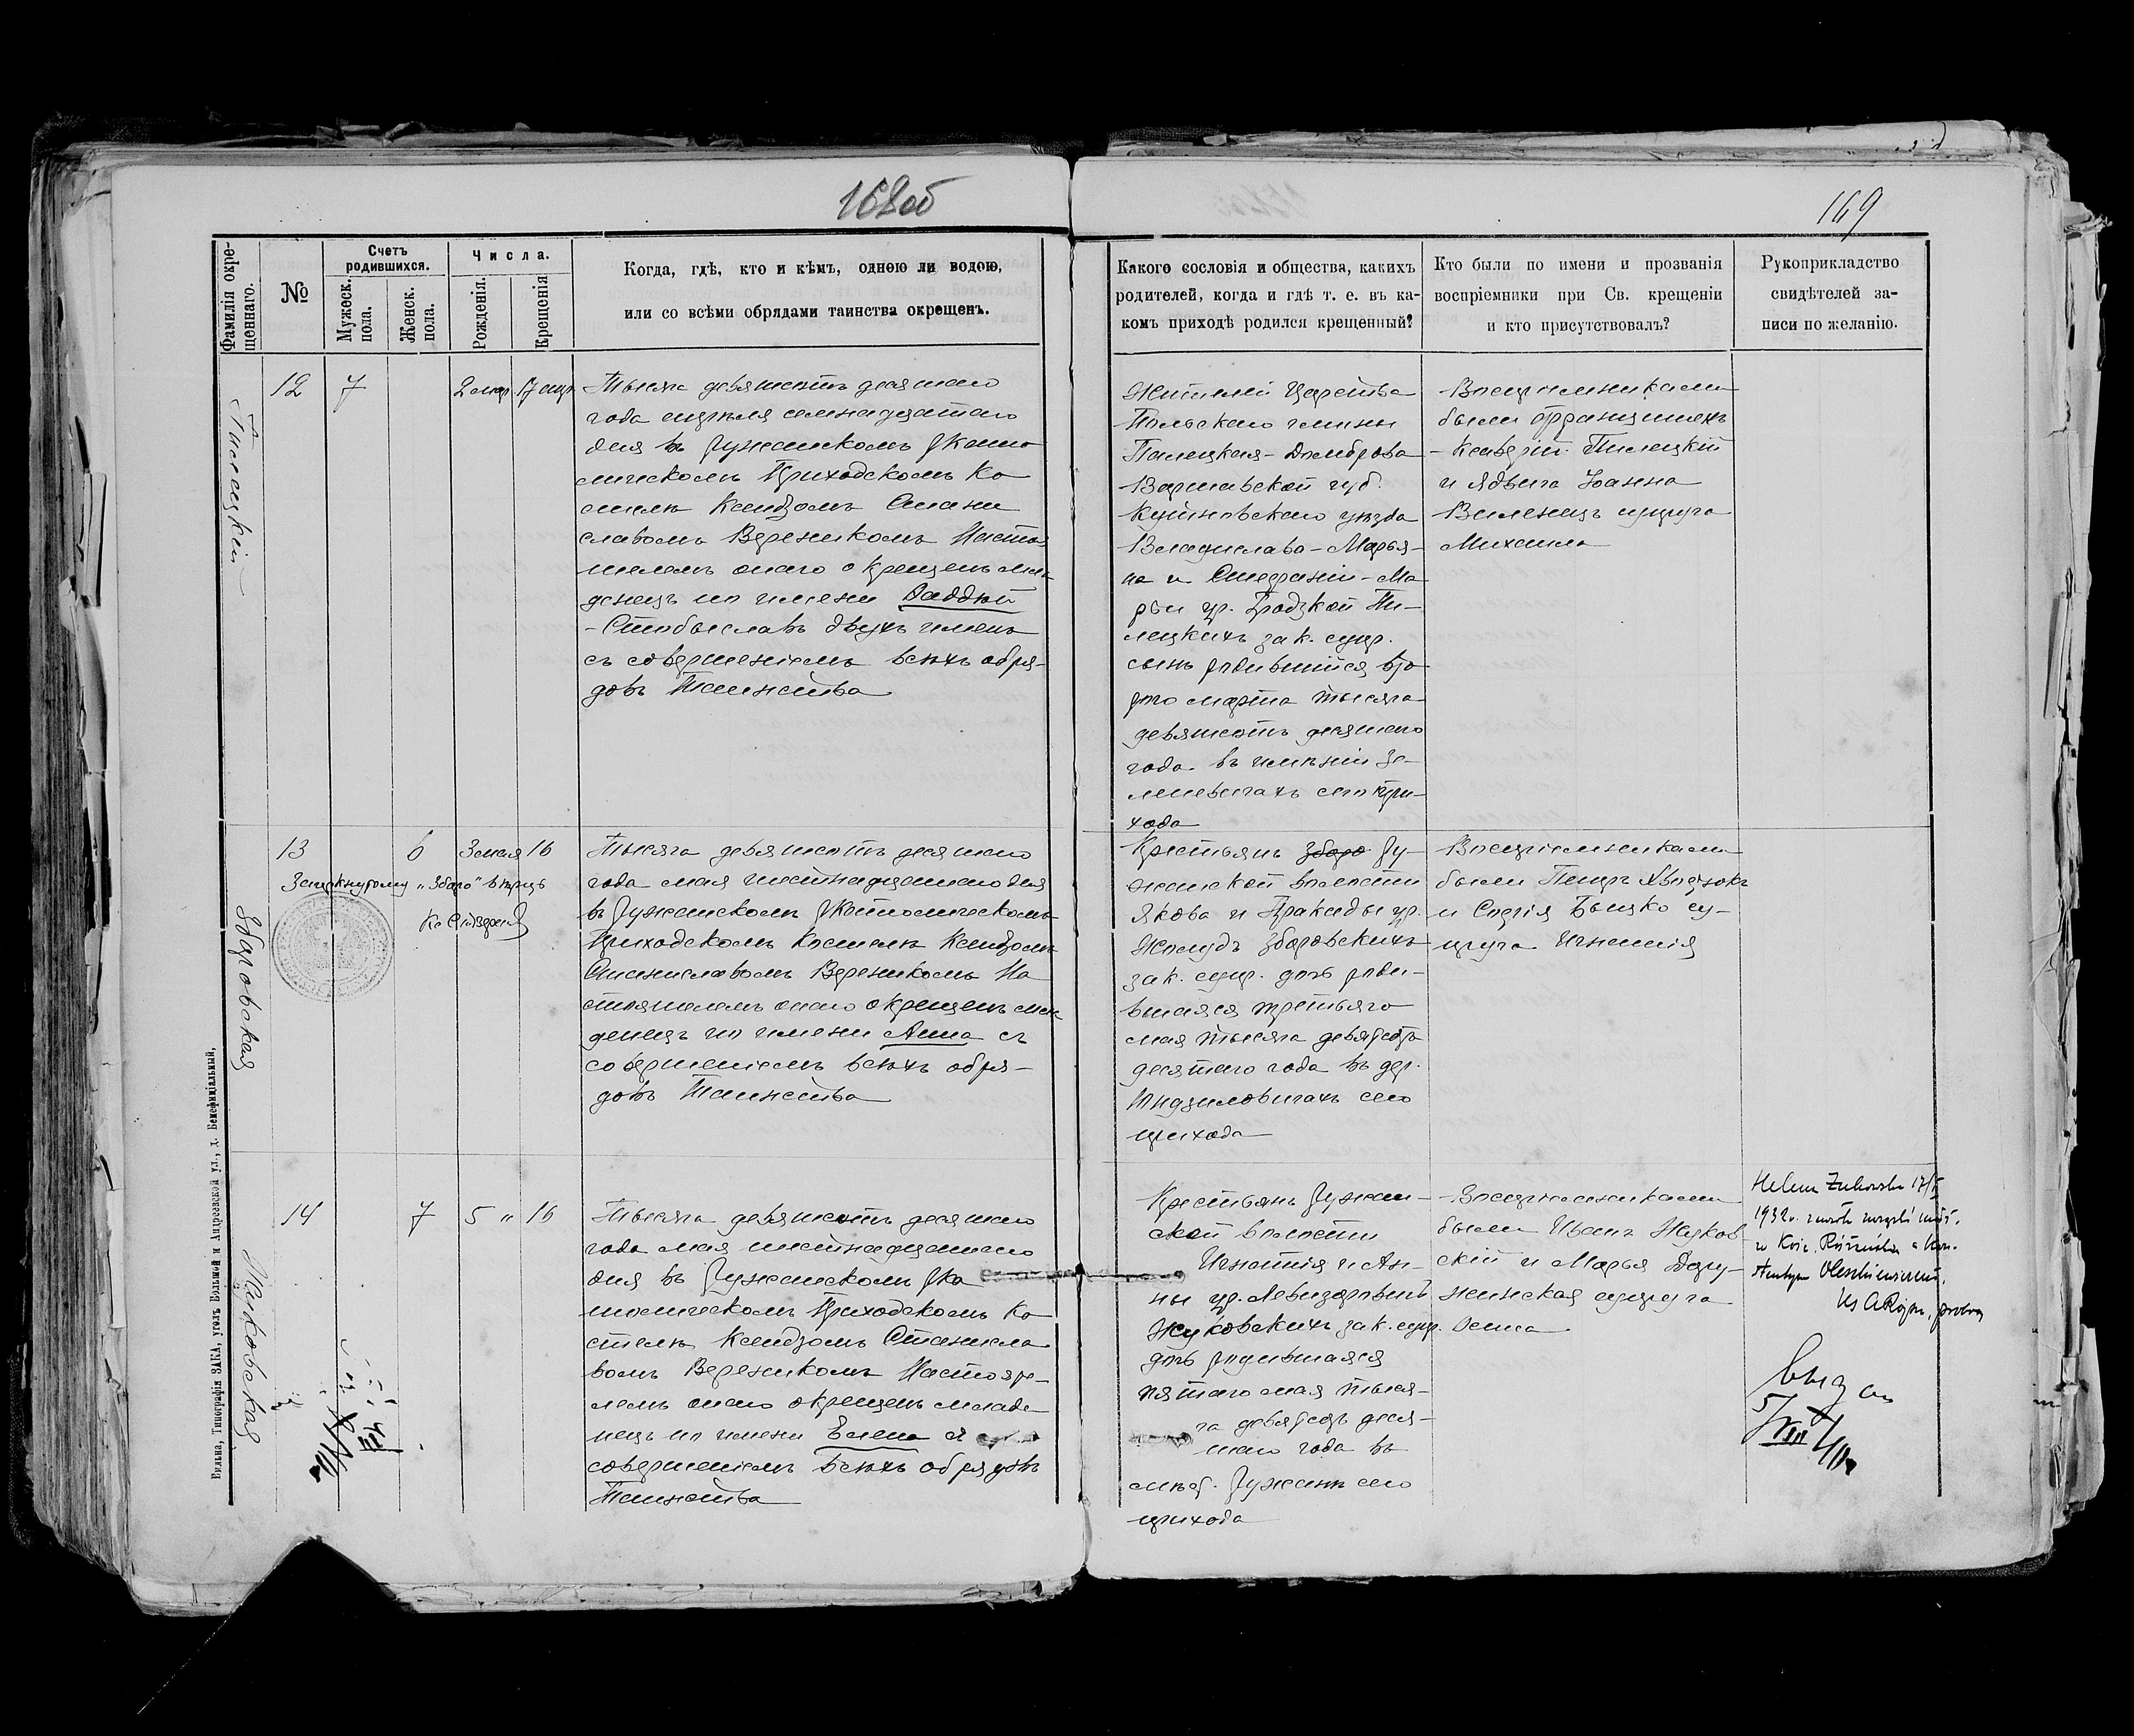 168об
169
Фамилія окре-
щеннаго.
№
Счетъ
родившихся.
Мужеск.
пола.
Женск.
пола.
Числа.
Рожденія.
Крещенія
Когда, гдѣ, кто и кѣмъ, одною ли водою,
или со всѣми обрядами таинства окрещенъ.
Какого сословія и общества, какихъ
родителей, когда и гдѣ т. е. въ ка-
комъ приходѣ родился крещенный?
Кто были по имени и прозванія
воспріемники при Св. крещеніи
и кто присутствовалъ?
Рукоприкладство
свидѣтелей за-
писи по желанію.
Пилецкій
12
7
2 мар. 17 апр.
Тысяча девятьсотъ десятаго
года апрѣля семнадцатаго
дня въ Ружанскомъ Р.Като
лическомъ Приходскомъ Ко
стелѣ Ксендзомъ Стани
славомъ Верениkомъ Настоя
телемъ онаго окрещенъ мла
денецъ по имени Фаддѣй
двухъ именъ
съ совершеніемъ всѣхъ обря-
довъ Таинства
Жителей Царства
Польскаго гмины
Домброва
Варшавской губ.
Кутновскаго уѣзда
Владислава-Марья-
на и Стефаніи-Ма
ріи ур. Пи-
лецкихъ зак. супр.
сынъ родившійся вто
рого марта тысяча
девятьсотъ десятаго
года въ имѣніи
сего при-
хода
Воспріемниками
были Францишекъ
-Ксаверій Пилецкій
и Ядвига Іоанна
супруга
Михаила
Збаровская
13
6
3 мая 16
Зачеркнутому „Збаро" вѣрить
Тысяча девятьсотъ десятаго
года мая шестнадцатаго дня
въ Ружанскомъ Р.Католическомъ
Приходскомъ Костелѣ Ксендзомъ
Станиславомъ Верениkомъ На
стоятелемъ онаго окрещенъ мла
денецъ по имени Анна съ
совершеніемъ всѣхъ обря-
довъ Таинства
Крестьянъ Збаро Ру-
жанской волости
Якова и Пракиды ур.
Жолудь Збаровскихъ
зак. супр. дочь роди-
вшаяся третьяго
мая тысяча девятьсотъ
десятаго года въ дер.
сего
прихода
Воспріемниками
были Петръ
и Софія су-
пруга Игнатія
Жуковская
14
7
5 „ 16
Тысяча девятьсотъ десятаго
года мая шестнадцатаго
дня въ Ружанскомъ Р.Ка
толическомъ Приходскомъ Ко
стелѣ Ксендзомъ Станисла
вомъ Верениkомъ Настояте-
лемъ онаго окрещенъ младе
нецъ по имени Елена съ
совершеніемъ всѣхъ обрядовъ
Таинства
Крестьянъ Ружан-
ской волости
Игнатія и Ан-
ны ур.
Жуковскихъ зак. супр.
дочь родившаяся
пятаго мая тыся-
ча девятьсотъ деся-
таго года въ
мѣст. Ружанѣ сего
прихода
Воспріемниками
были Иванъ Жуков
скій и Марья
супруга
Осипа
Helena Żukowska 17/I
1932 r.
Вильна, Типографія ЗАКА, уголъ Большой и Андреевской ул., д. Бенефиціальный.